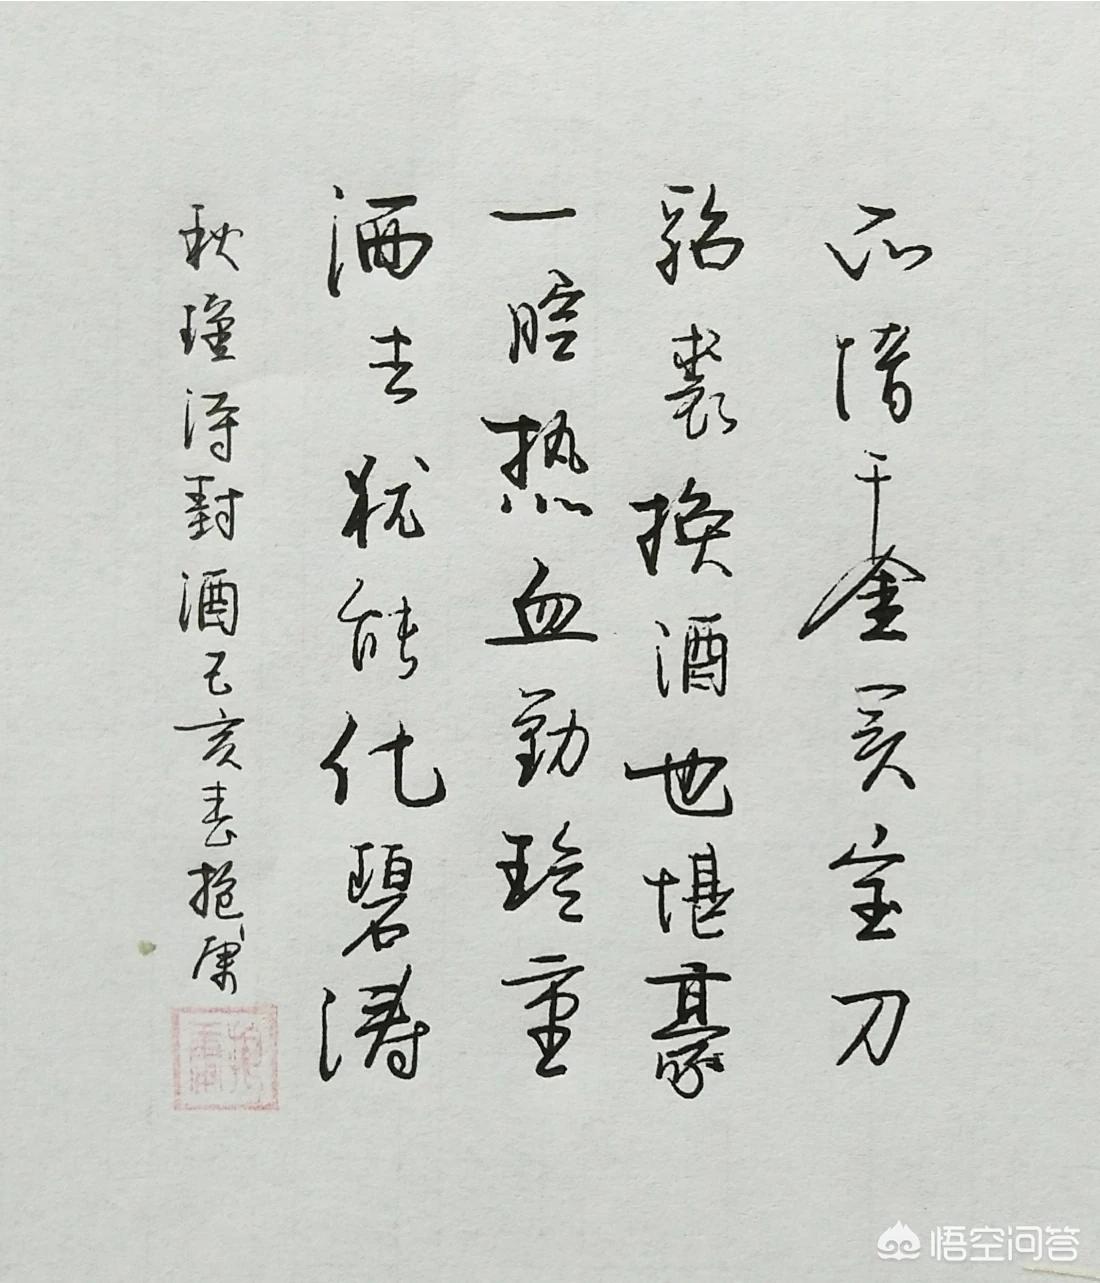 不惜千金买宝刀
貂裘换酒也堪豪
一腔热血勤珍重
洒去犹能化碧涛
秋瑾诗對酒己亥春抱朴
悟空问答